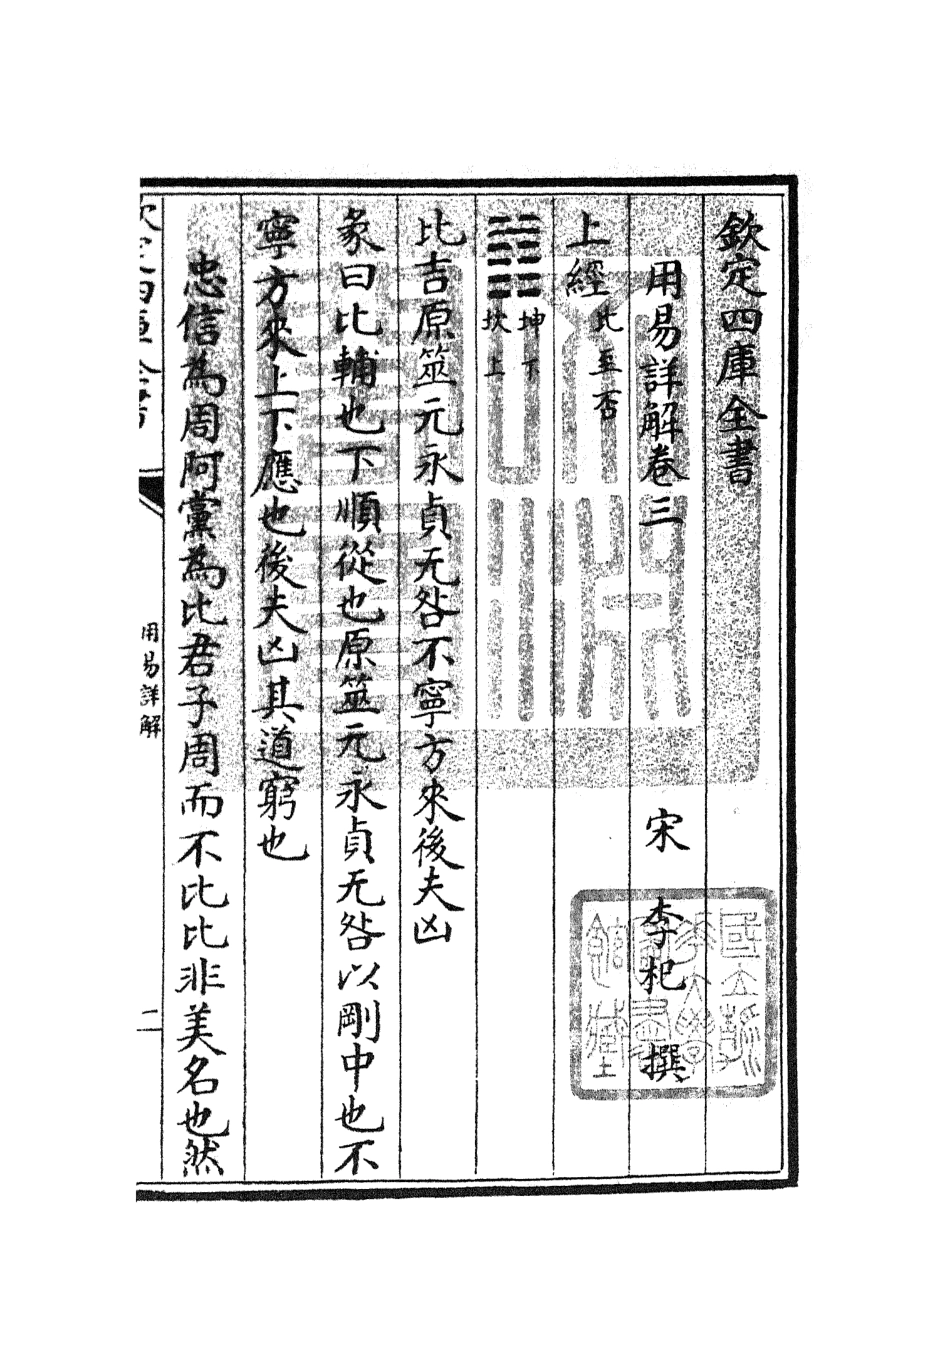 欽定四庫全書
用易詳解卷三
宋 李杞 撰
上經 比至否
䷇ 坤下坎上
比吉原筮元永貞无咎不寧方來後夫凶
彖曰比輔也下順從也原筮元永貞无咎以剛中也不
寧方來上下應也後夫凶其道窮也
忠信為周阿黨為比君子周而不比比非美名也然
用易詳解
二